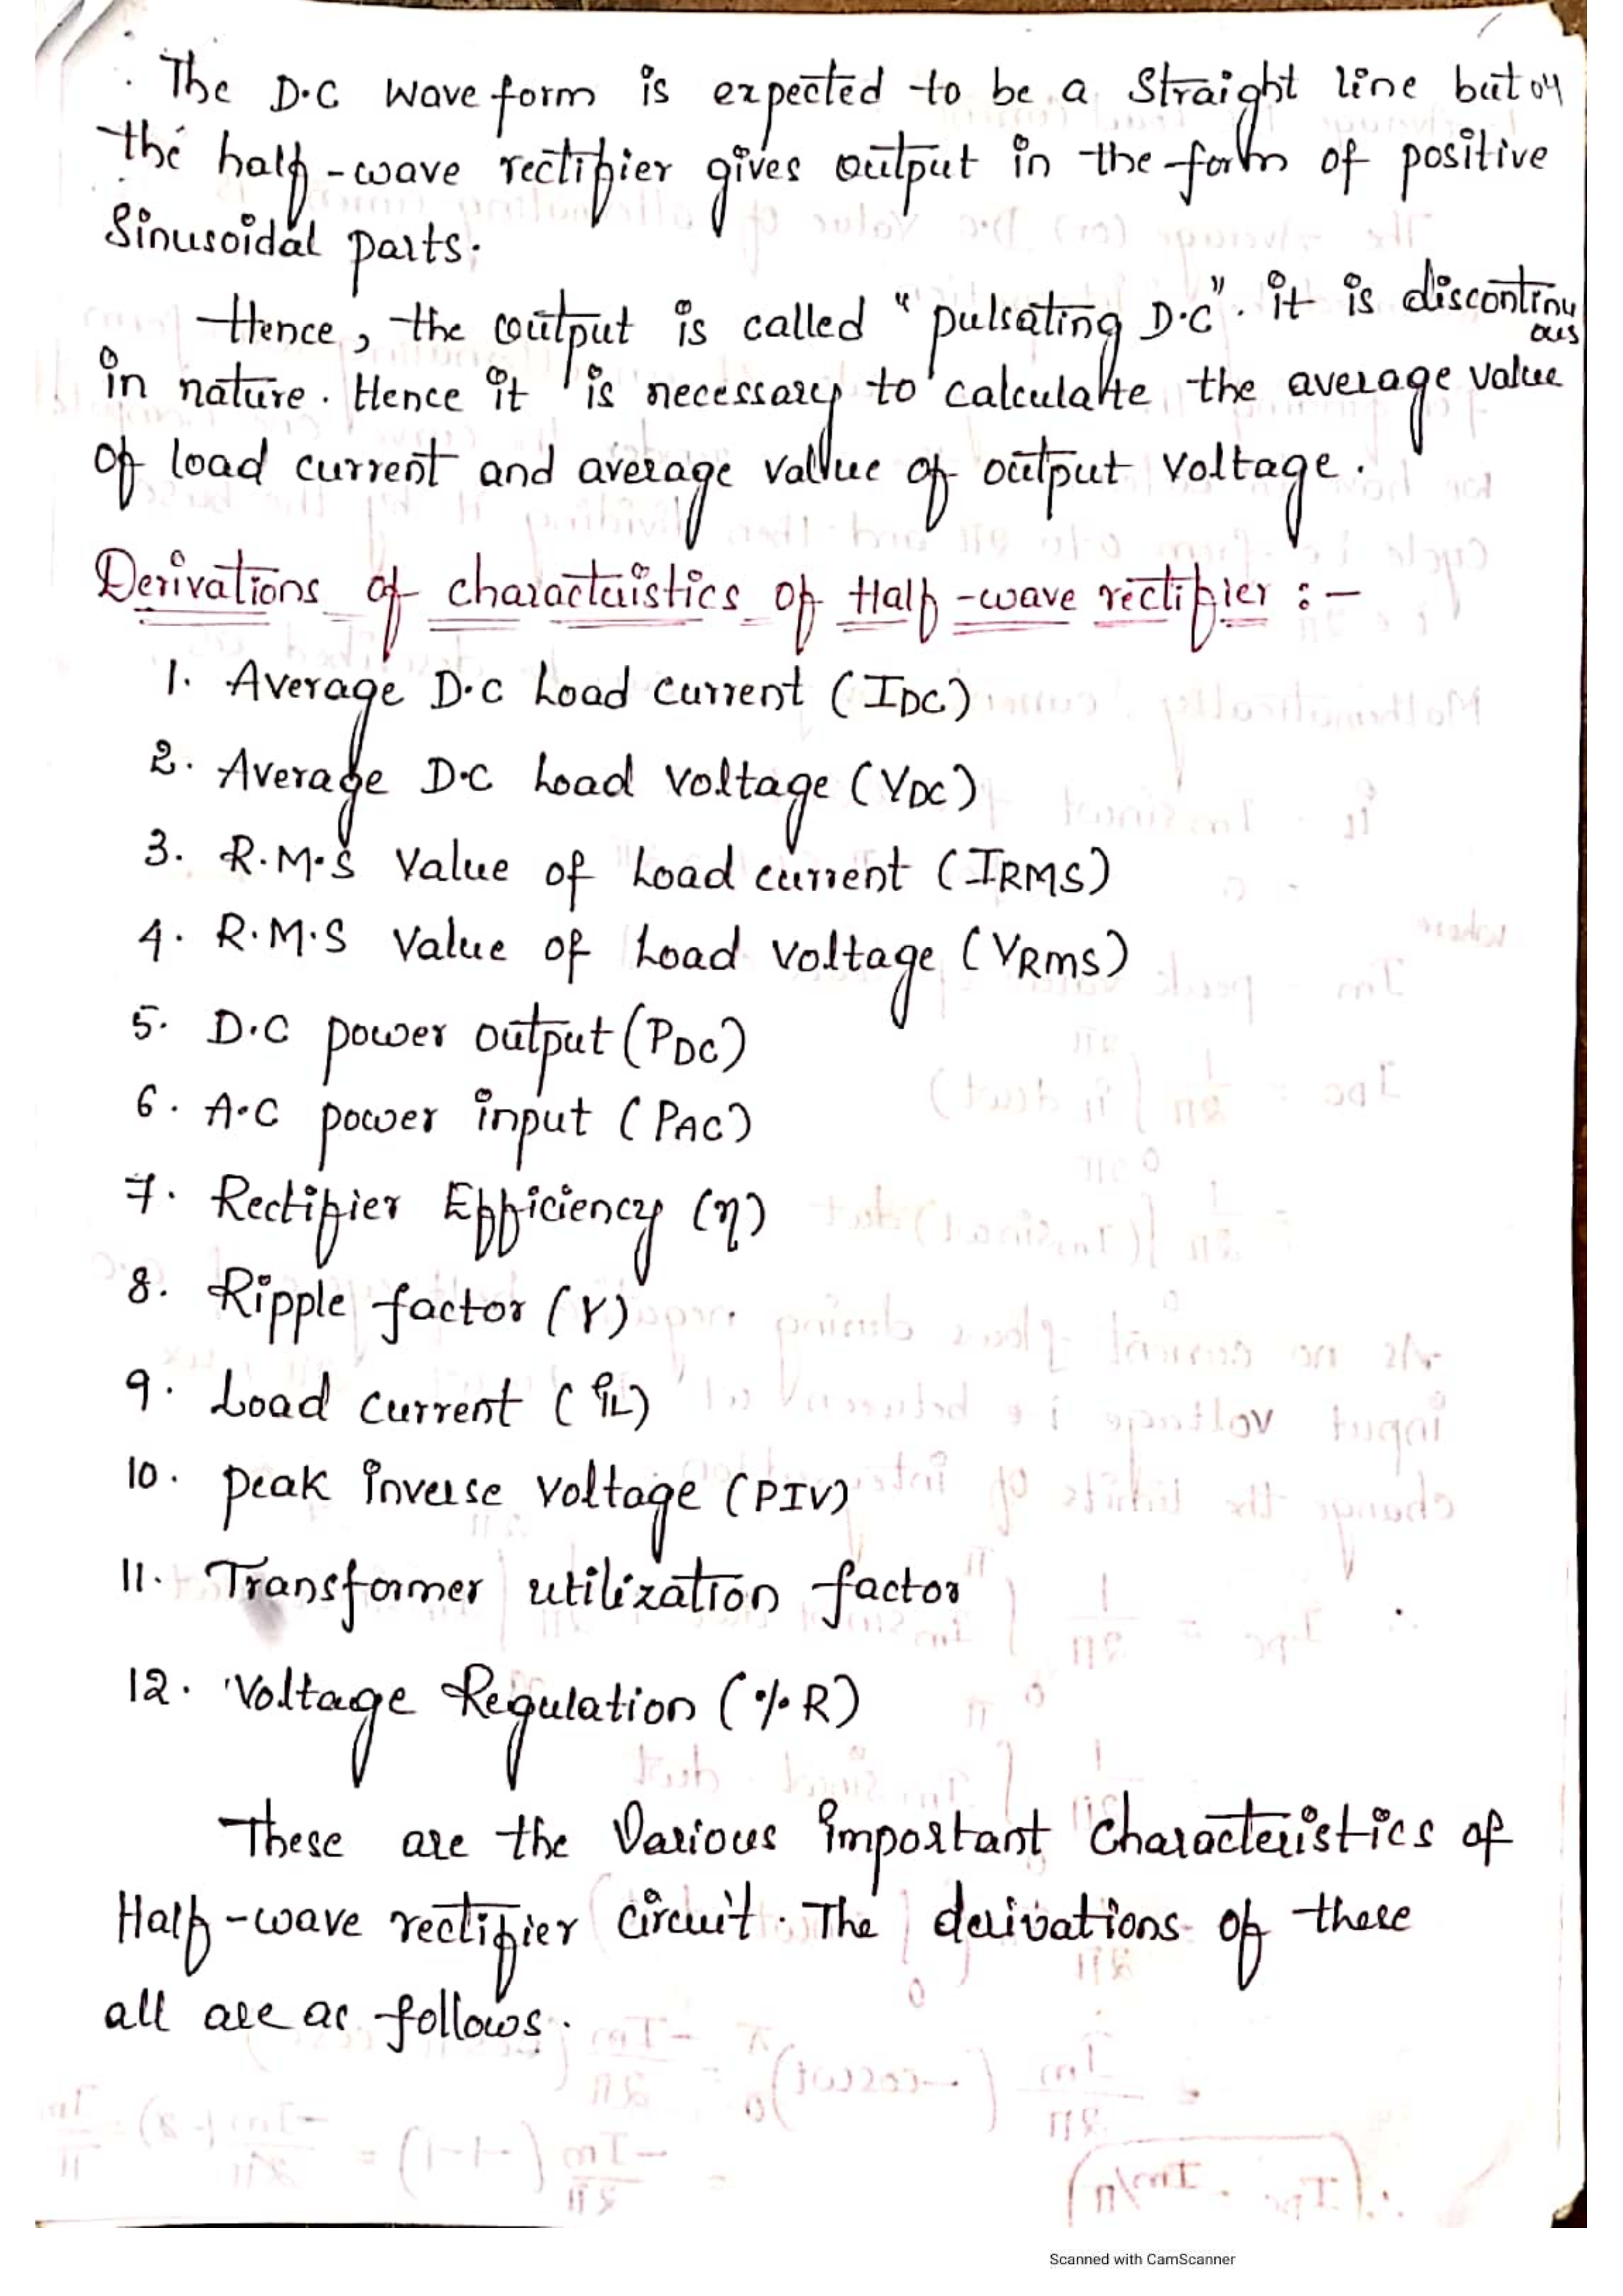 The D.C wave form is expected to be a straight line but
the half-wave rectifier gives output in the form of positive
Sinusoidal parts.
Hence, the output is called "pulsating D.C". it is discontinuous
in nature. Hence it is necessary to calculate the average value
of load current and average value of output voltage.
Derivations of charactaistics of Half-wave rectifier :-
1. Average D.C Load current (IDC)
2. Average D.C Load voltage (VDC)
3. R.M.S value of Load current (IRMS)
4. R.M.S value of Load voltage (VRMS)
5. D.C power output (PDC)
6. A.C power input (PAC)
7. Rectifier Efficiency (η)
8. Ripple factor (γ)
9. Load current (iL)
10. peak inverse voltage (PIV)
11. Transformer utilization factor
12. Voltage Regulation (%R)
These are the various important characteristics of
Half-wave rectifier circuit. The derivations of these
all are as follows.
Scanned with CamScanner